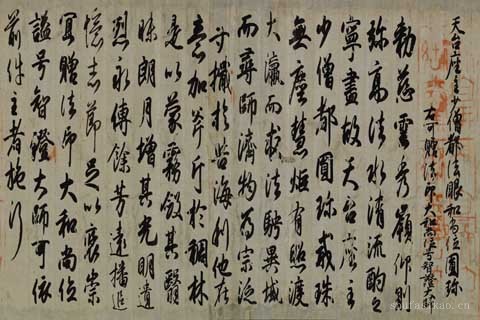 天台座主少僧都法眼和尚位圓珎
右可贈法印大和尚位号智證大師
勅慈雲秀嶺仰則
弥高法水清流酌之
寧盡故天台座主
少僧都圓珎戒珠
無塵慧炬有照渡
大瀛而求法聘異域
而尋師濟物為宗泛
舟檝於苦海利他在
意加斧斤於稠林
是以蒙霧斂其翳
昧朗月增其光明遺
烈永傳餘芳遠播追
憶志節足以褒崇
冝贈法印大和尚位
謚号智證大師可依
前件主者施行